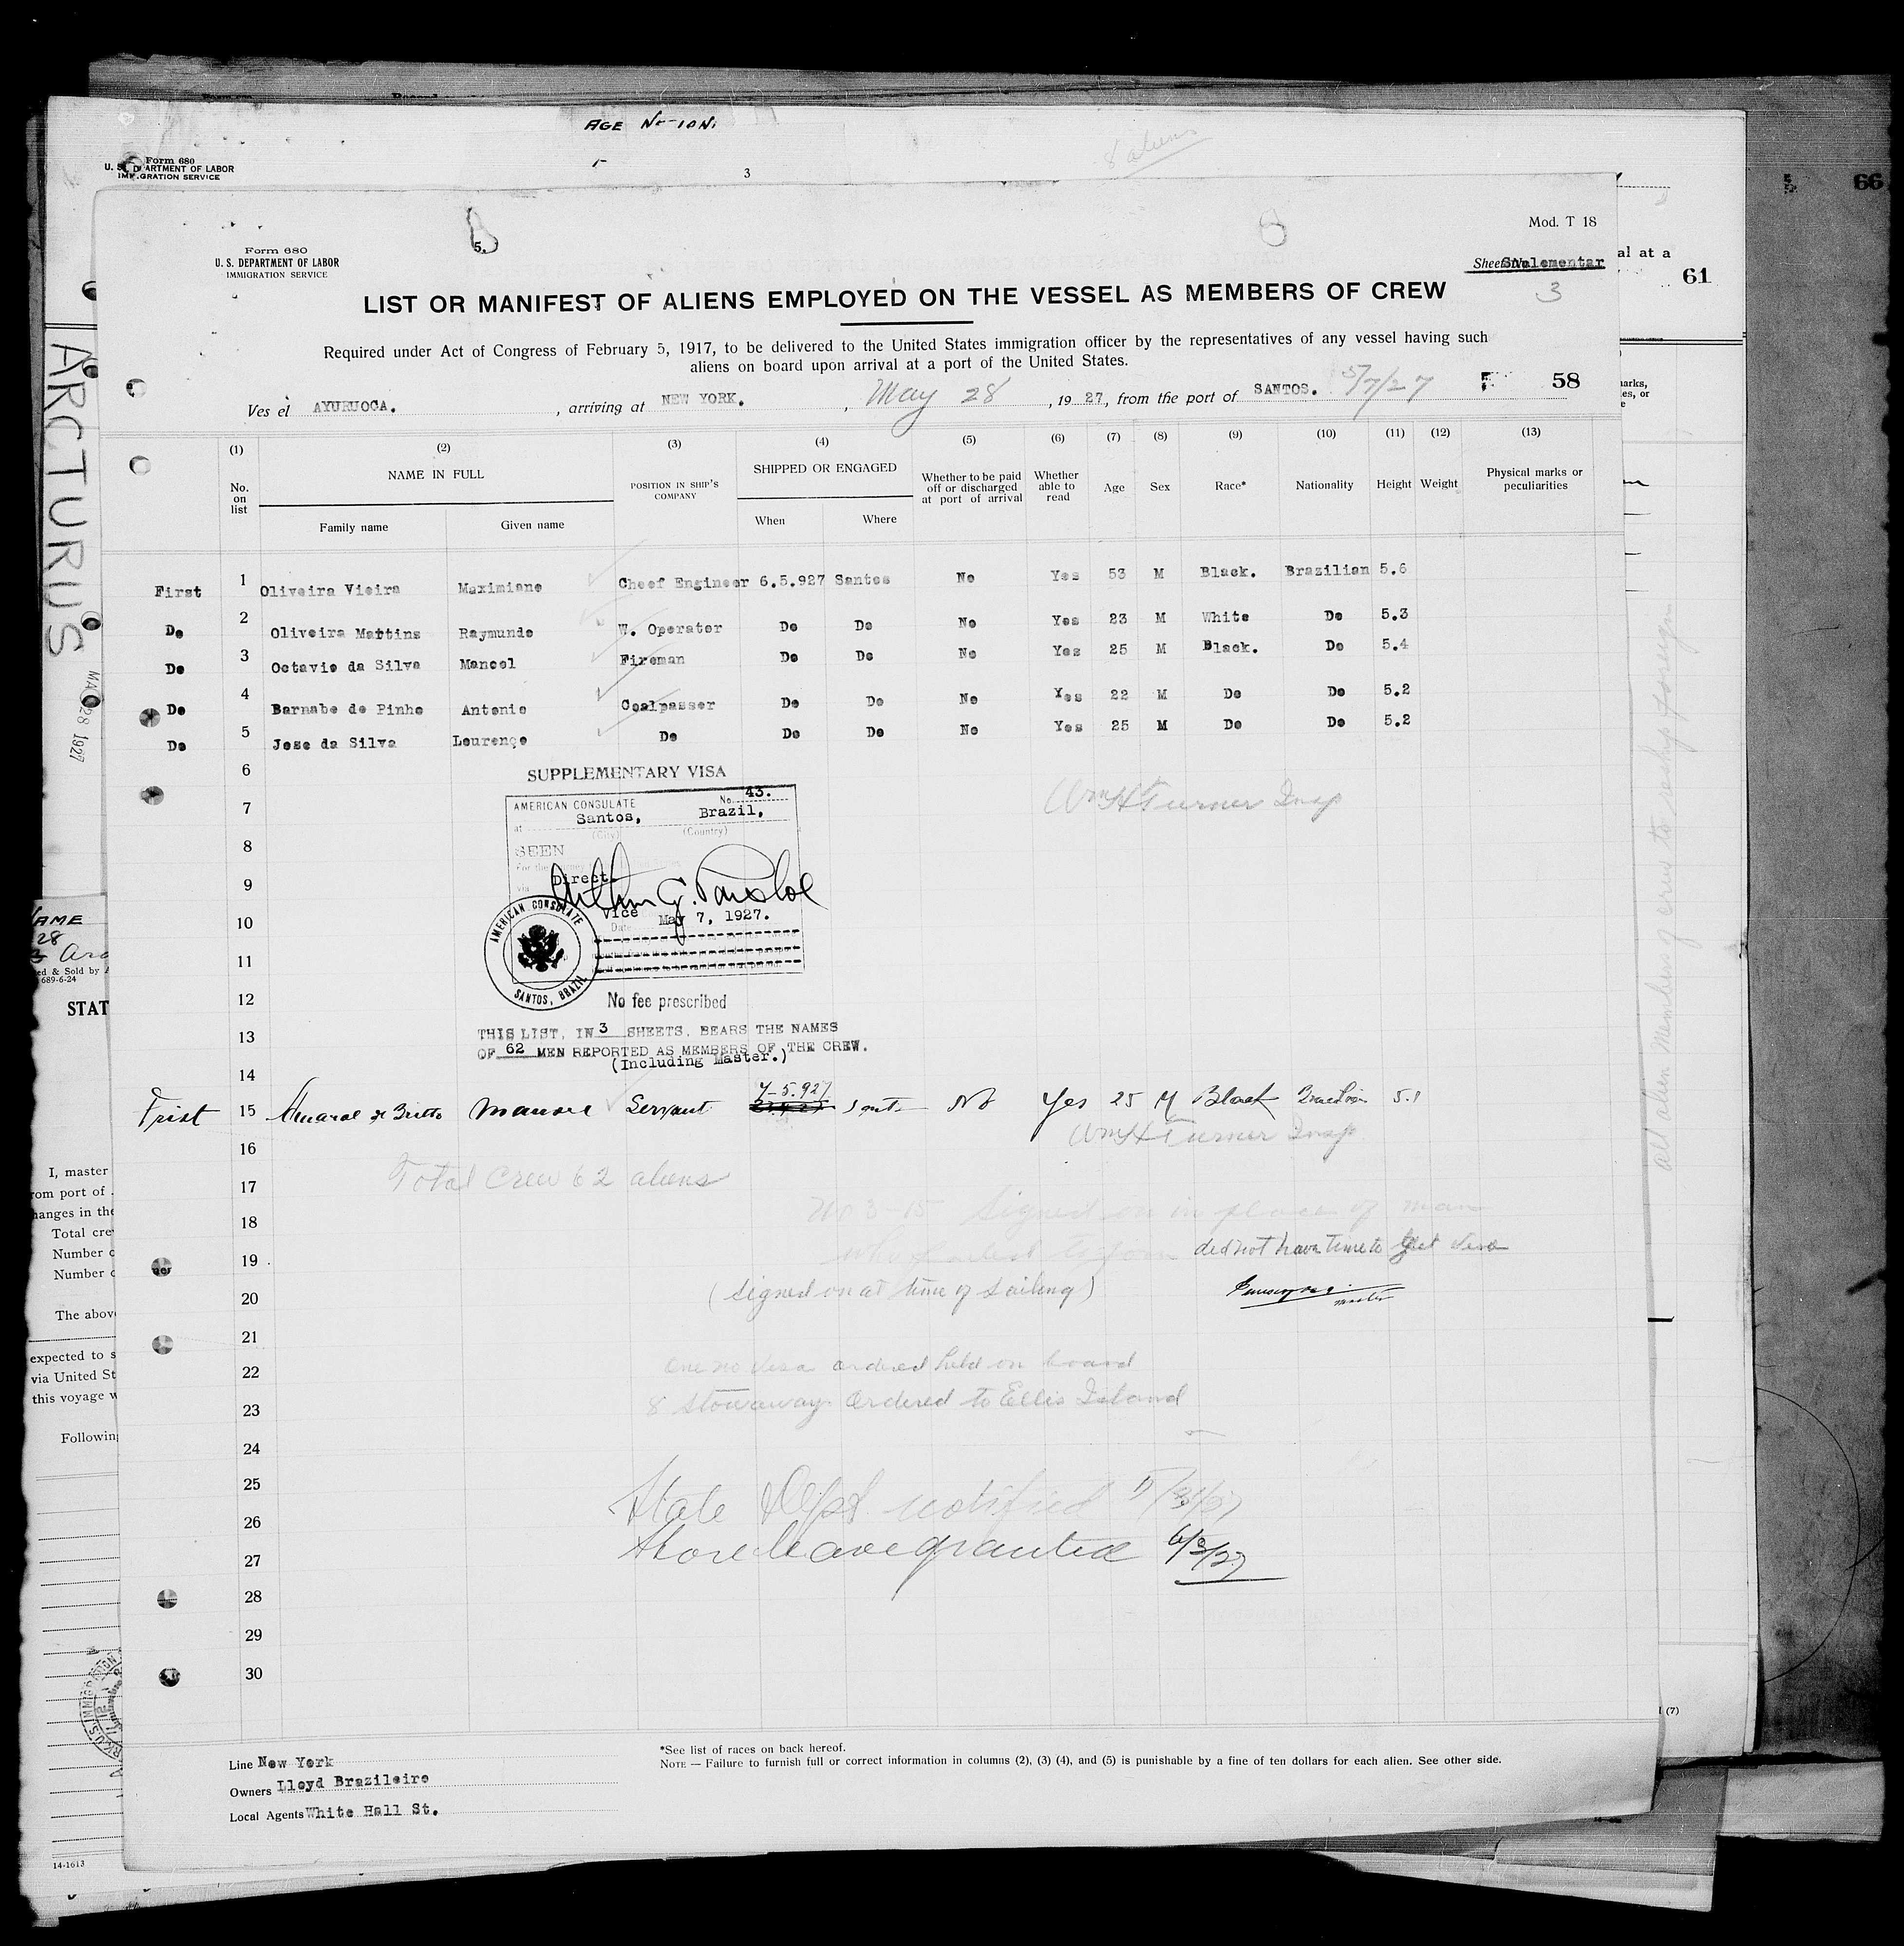 AGE
8 aliens
Form 680
U. S. DEPARTMENT OF LABOR
IMMIGRATION SERVICE
3
66
Mod. T 18
5.
Form 680
U. S. DEPARTMENT OF LABOR
IMMIGRATION SERVICE
al at a
61
3
LIST OR MANIFEST OF ALIENS EMPLOYED ON THE VESSEL AS MEMBERS OF CREW
Required under Act of Congress of February 5, 1917, to be delivered to the United States immigration officer by the representatives of any vessel having such
aliens on board upon arrival at a port of the United States.
Ves el AYURUOCA. , arriving at NEW YORK. , May 28 , 19 27, from the port of SANTOS. 5/7/27 58
(1) (2) (3) (4) (5) (6) (7) (8) (9) (10) (11) (12) (13)
No. on list NAME IN FULL POSITION IN SHIP'S COMPANY SHIPPED OR ENGAGED Whether to be paid off or discharged at port of arrival Whether able to read Age Sex Race* Nationality Height Weight Physical marks or peculiarities
Family name Given name When Where
First 1 Oliveira Vieira Maximiano Cheef Engineer 6.5.927 Santos No Yes 53 M Black. Brazilian 5.6
Do 2 Oliveira Martins Raymundo W. Operator Do Do No Yes 23 M White Do 5.3
Do 3 Octavio da Silva Manoel Fireman Do Do No Yes 25 M Black. Do 5.4
Do 4 Barnabe de Pinho Antonio Coalpasser Do Do No Yes 22 M Do Do 5.2
Do 5 Jose da Silva Lourenço Do Do Do No Yes 25 M Do Do 5.2
6
SUPPLEMENTARY VISA
7
AMERICAN CONSULATE No. 43.
at Santos, Brazil,
(City) (Country)
Wm H Turner Insp
8
SEEN
For the
via Direct.
9
10
Vice May 7, 1927.
Date
AMERICAN CONSULATE
SANTOS, BRAZIL
11
12
No fee prescribed
13
THIS LIST, IN 3 SHEETS, BEARS THE NAMES
OF 62 MEN REPORTED AS MEMBERS OF THE CREW.
(Including Master.)
14
15 Manoel Servant 7-5.927 No Yes 25 M Black 5.1
16
Wm H Turner Insp
17
Total Crew 62 aliens
18
No 3-15 Signed on in place of man
19
did not have time to get visa
20
(Signed on at time of sailing)
21
22
One no visa ordered held on board
23
8 Stowaways Ordered to Ellis Island
24
25
State Dept notified
26
27
Shore leave granted 6/3/27
28
29
30
Line New York
Owners Lloyd Brazileiro
Local Agents White Hall St.
*See list of races on back hereof.
NOTE — Failure to furnish full or correct information in columns (2), (3) (4), and (5) is punishable by a fine of ten dollars for each alien. See other side.
ARCTURUS
28 1927
689-6-24
STAT
I, master
rom port of
hanges in the
Total cre
Number o
Number o
The above
expected to s
via United St
this voyage w
Following
14-1613
(7)